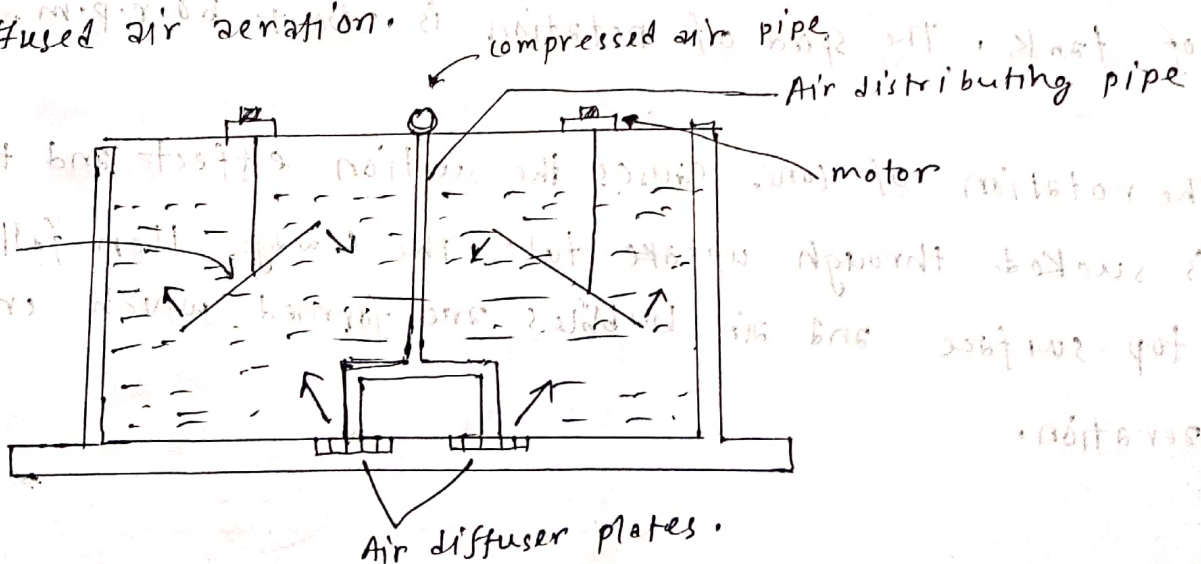 fused air aeration.
compressed air pipe
Air distributing pipe
motor
Air diffuser plates.